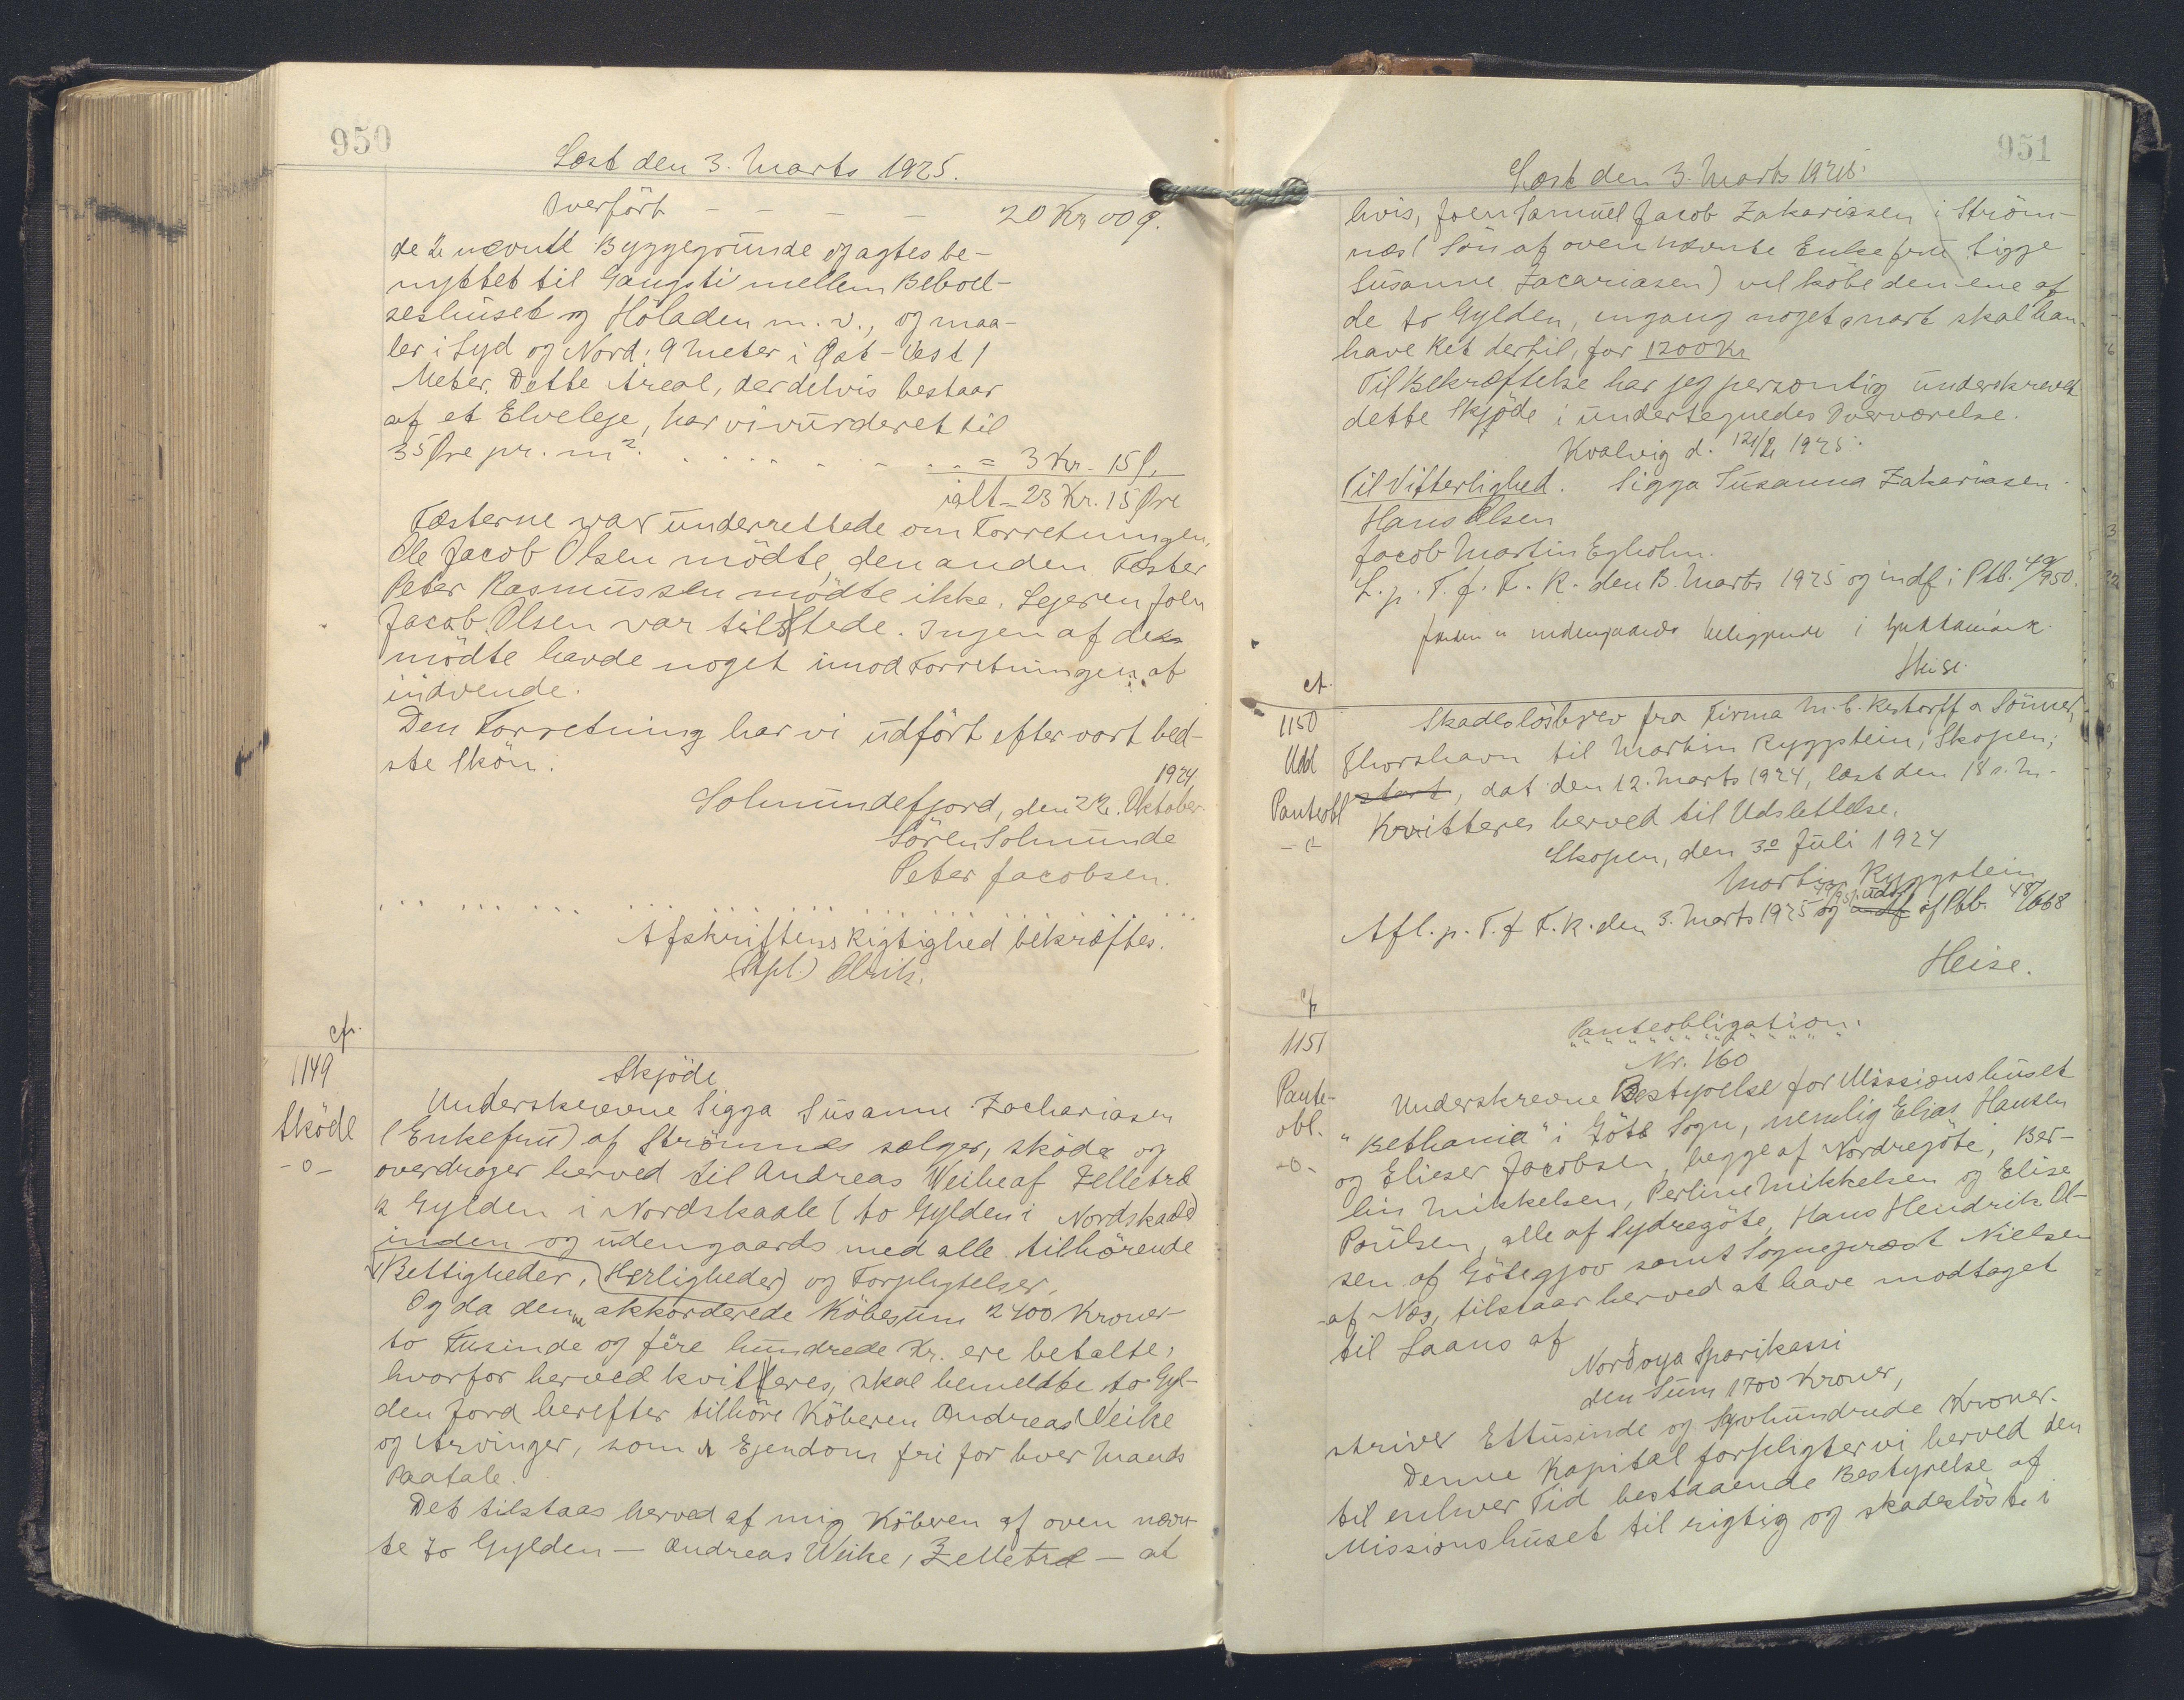 950
Læst den 3. Marts 1925.
Overført - - - - 20 Kr. 00 Ø.
de 2 nævnte Byggegrunde og agtes be-
nyttet til Gangsti mellem Beboel-
seshuset og Höladen m. v., og maa-
ler i Syd og Nord: 9 Meter i Øst-Vest 1
Meter. Dette Areal, der delvis bestaar
af et Elveleje, har vi vurderet til
35 Øre pr. m². . . . . . - - . . = 3 Kr. 15 Ø.
ialt = 23 Kr. 15 Øre
Fæsterne var underrettede om Forretningen,
Ole Jacob Olsen mödte, den anden Fæster
Peter Rasmussen mödte ikke. Lejeren Joen
Jacob Olsen var tilstede. Ingen af de
mödte havde noget imod Forretningen at
indvende.
Den Forretning har vi udfört efter vort bed-
ste Skön.
1924
Solmundefjord, den 22. Oktober.
Sören Solmunde
Peter Jacobsen.
Afskriftens Rigtighed bekræftes.
(Stpl.) Olrik.
cfr.
1149
Sköde
-o-
Skjöde
Underskrevne Sigga Susanne Zachariasen
(Enkefru) af Strömnæs sælger, sköder og
overdrager herved til Andreas Weihe af Zelletræ
2 Gylden i Nordskaale (to Gylden i Nordskaale)
inden og udengaards med alle tilhörende
Rettigheder, (Herligheder) og Forpligtelser.
Og da denne akkorderede Köbesum 2400 Kroner
to Tusinde og fire hundrede Kr. ere betalte,
hvorfor herved kvitteres, skal bemeldte to Gyl-
den Jord herefter tilhöre Köberen Andreas Weihe
og Arvinger, som Ejendom fri for hver Mands
Paatale.
Det tilstaas herved af mig Köberen af oven nævn-
te to Gylden - Andreas Weihe, Zelletræ - at
951
Læst den 3. Marts 1925.
hvis, Joen Samuel Jacob Zakariasen i Ström-
næs (Sön af oven nævnte Enkefru Sigge
Susanne Zacariasen) vil köbe den ene af
de to Gylden, engang noget snart skal han
have Ret dertil, for 1200 Kr
Til Bekræftelse har jeg personlig underskrevet
dette Skjöde i undertegnedes Overværelse.
Kvalvig d. 12/2 1925.
Til Vitterlighed. Sigga Susanna Zakariasen.
Hans Olsen
Jacob Martin Egholm.
L. p. T. f. F. R. den 3. Marts 1925 og indf. i Ptb. 49/950.
inden og udengaards beliggende i
Heise.
cf.
1150
Udl
Panteobl
-o-
Skadeslösbrev fra Firma M. C. Restorff & Sönner,
Thorshavn til Martin Ryggstein, Skopen;
, dat den 12. Marts 1924, læst den 18 s. M.
Kvitteres herved til Udslettelse.
Skopen, den 30 Juli 1924
Martin Ryggstein
49/951
udsl.
Afl. p. T. f F. R. den 3. Marts 1925 og indf af Ptb. 48/668
Heise.
cfr
1151
Pante-
obl.
-o-
Panteobligation.
Nr. 160
Underskrevne Bestyrelse for Missionshuset
"Bethania" i Göte Sogn, nemlig Elias Hansen
og Elieser Jacobsen, begge af Nordregöte, Ber-
lin Mikkelsen, Perline Mikkelsen og Elise
Poulsen, alle af Sydregöte, Hans Hendrik Ol-
sen af Götegjov samt Sognepræst Nielsen
af Næs, tilstaar herved at have modtaget
til Laans af
Nordoya Sparikassi
den Sum 1700 Kroner,
skriver Ettusinde og Syvhundrede Kroner.
Denne Kapital forpligter vi herved den
til enhver Tid bestaaende Bestyrelse af
Missionshuset til rigtig og skadeslöst i